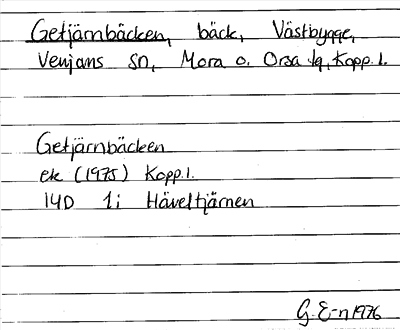 Getjärnbäcken, bäck, Västbygge,
Venjans sn, Mora o. Orsa tg, Kopp. l.
Getjärnbäcken
ek (1975) Kopp. l.
14D 1i Häveltjärnen
G. E-n 1976